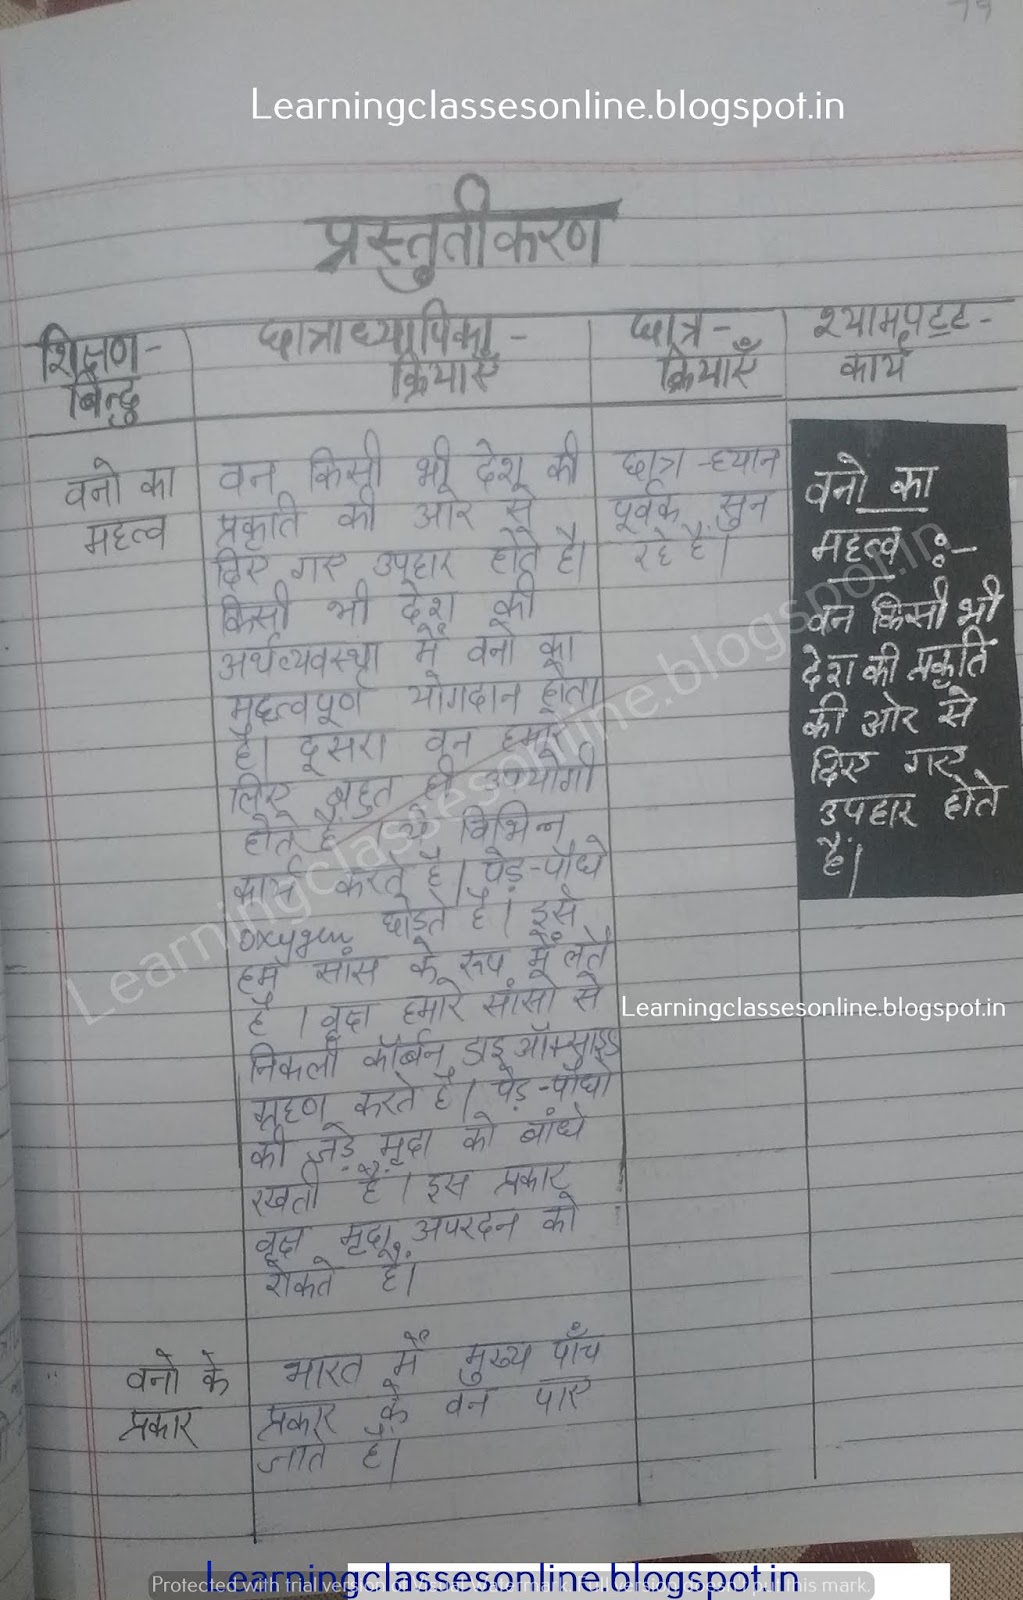 79
Learningclassesonline.blogspot.in
प्रस्तुतीकरण
शिक्षण-
बिन्दु
छात्राध्यापिका-
क्रियाएँ
छात्र-
क्रियाएँ
श्यामपट्ट-
कार्य
वनो का
महत्व
वन किसी भी देश की
प्रकृति की ओर से
दिए गए उपहार होते है।
किसी भी देश की
अर्थव्यवस्था में वनो का
महत्वपूर्ण योगदान होता
है। दूसरा वन हमारे
लिए बहुत ही उपयोगी
होते है ये विभिन्न
कार्य करते है। पेड़-पौधे
oxygen छोड़ते है। इसे
हमें सांस के रूप में लेते
है। वृक्ष हमारे सांसो से
निकली कॉर्बन डाइऑक्साइड
ग्रहण करते है। पेड़-पौधो
की जड़े मृदा को बांधे
रखती हैं। इस प्रकार
वृक्ष मृदा अपरदन को
रोकते हैं।
छात्र ध्यान
पूर्वक सुन
रहे हैं।
वनो का
महत्व :-
वन किसी भी
देश की प्रकृति
की ओर से
दिए गए
उपहार होते
हैं।
Learningclassesonline.blogspot.in
Learningclassesonline.blogspot.in
वनो के
प्रकार
भारत में मुख्य पाँच
प्रकार के वन पाए
जाते है।
Learningclassesonline.blogspot.in
Protected with trial version of Visual Watermark. Full version doesn't put this mark.